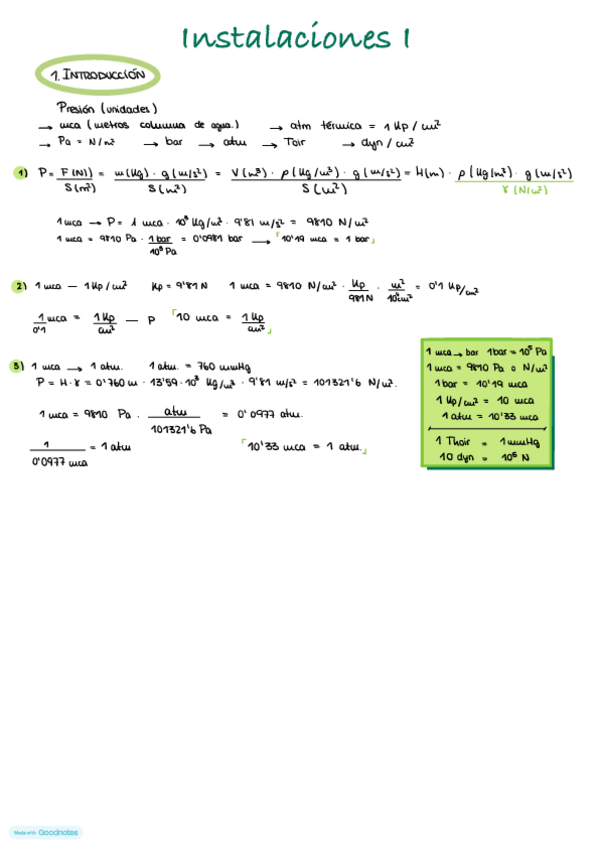 Instalaciones I
1. INTRODUCCIÓN
Presión (unidades)
→ mca (metros columna de agua.) → atm térmica = 1 Kp / cm²
→ Pa = N/m² → bar → atm → Torr → dyn / cm²
1) P = F(N) / S(m²) = m(Kg) · g(m/s²) / S(m²) = V(m³) · ρ(Kg/m³) · g(m/s²) / S(m²) = H(m) · ρ(Kg/m³) · g(m/s²)
γ (N/m³)
1 mca → P = 1 mca · 10³ Kg/m³ · 9'81 m/s² = 9810 N/m²
1 mca = 9810 Pa · 1 bar / 10⁵ Pa = 0'0981 bar → 「10'19 mca = 1 bar」
2) 1 mca — 1 Kp / cm² Kp = 9'81 N 1 mca = 9810 N/m² · Kp / 9'81 N · m² / 10⁴cm² = 0'1 Kp/cm²
1/0'1 mca = 1 Kp / cm² — P 「10 mca = 1 Kp / cm²」
3) 1 mca → 1 atm. 1 atm. = 760 mmHg
P = H · γ = 0'760 m · 13'59 · 10³ Kg/m³ · 9'81 m/s² = 101321'6 N/m².
1 mca = 9810 Pa · atm / 101321'6 Pa = 0'0977 atm.
1 / 0'0977 mca = 1 atm 「10'33 mca = 1 atm.」
1 mca → bar 1bar = 10⁵ Pa
1 mca = 9810 Pa o N/m²
1 bar = 10'19 mca
1 Kp/cm² = 10 mca
1 atm = 10'33 mca
1 Thoir = 1mmHg
10 dyn = 10⁵ N
Made with Goodnotes